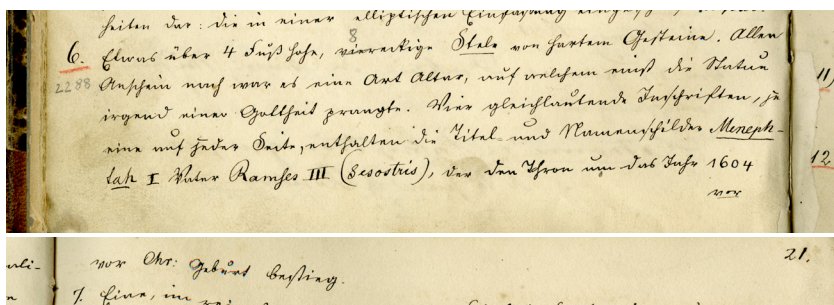 heiten dar: die in einer elliptischen Einfassung
6. Etwas über 4 Fuß hohe, 8 viereckige Stele von hartem Gesteine. Allen
2288 Anschein nach war es eine Art Altar, auf welchem einst die Statue
irgend einer Gottheit prangte. Vier gleichlautende Inschriften, je
eine auf jeder Seite, enthalten die Titel und Namenschilder Meneph-
tah I Vater Ramses III (Sesostris), der den Thron um das Jahr 1604
vor
11)
12
21.
vor Chr: Geburt bestieg.
7. Eine, im